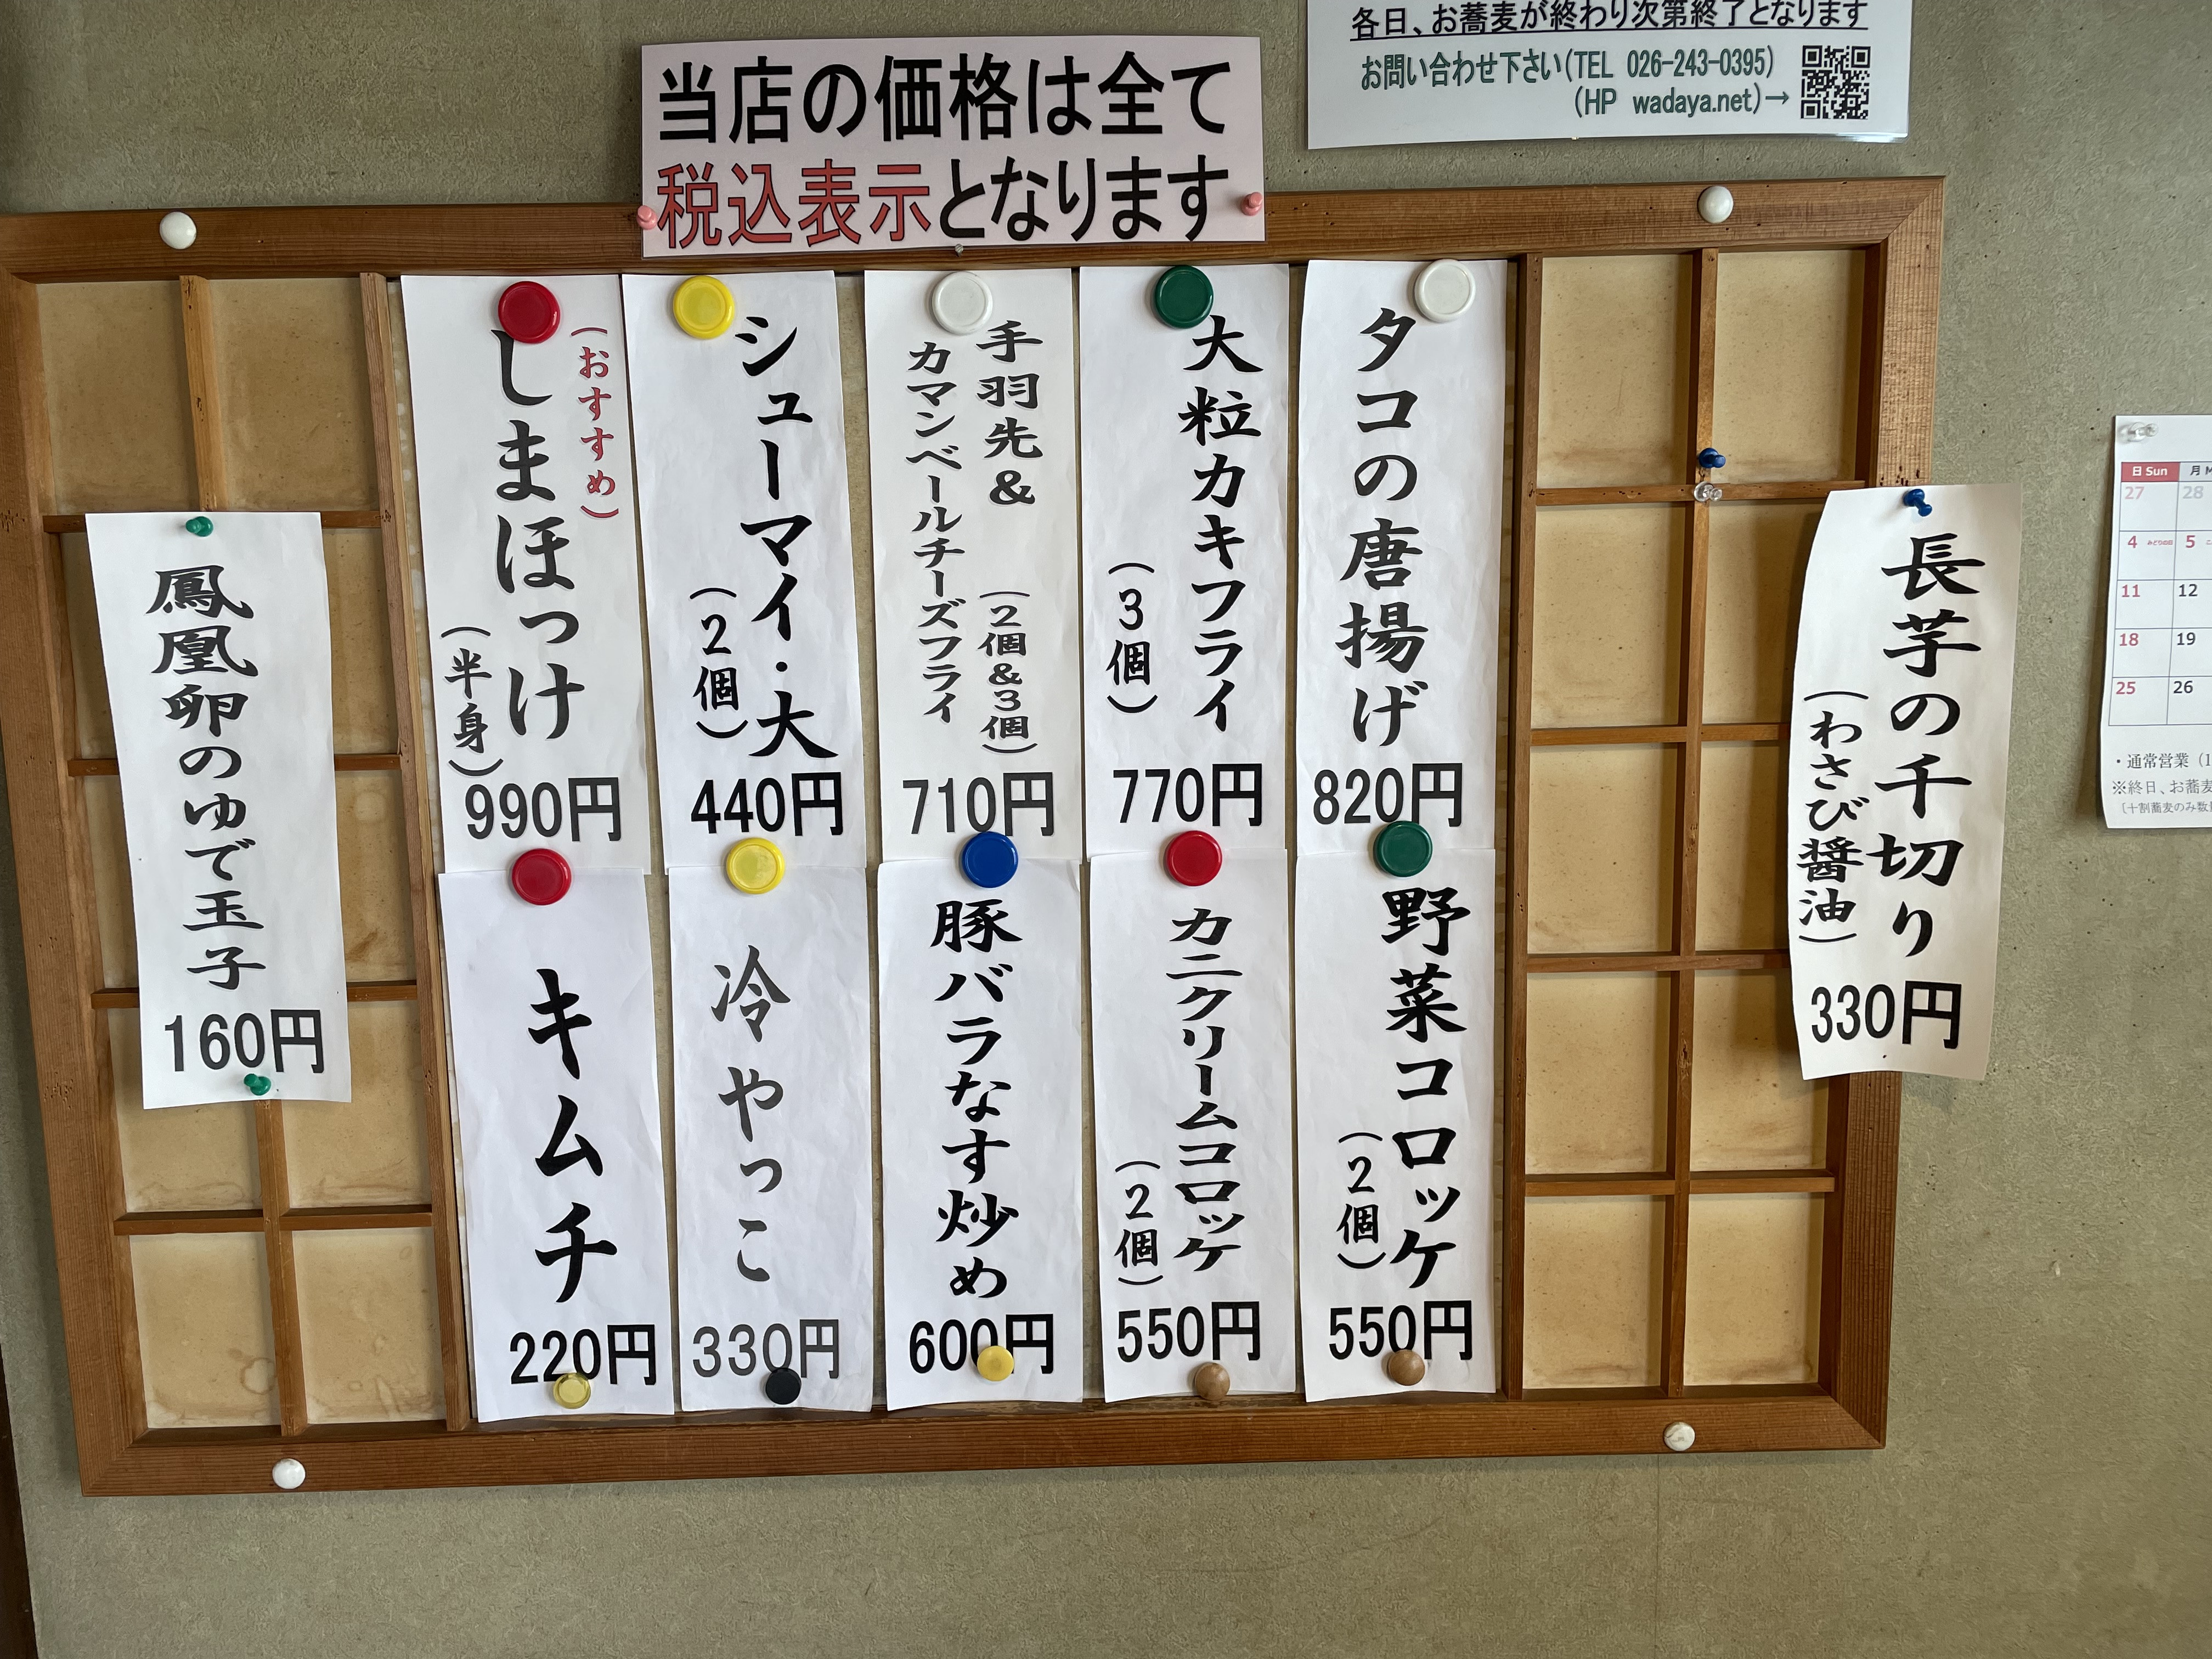 各日、お蕎麦が終わり次第終了となります
お問い合わせ下さい(TEL 026-243-0395)
(HP wadaya.net)→
当店の価格は全て
税込表示となります
長芋の千切り
(わさび醤油)
330円
タコの唐揚げ
820円
大粒カキフライ
(3個)
770円
手羽先&
カマンベールチーズフライ
(2個&3個)
710円
シューマイ・大
(2個)
440円
(おすすめ)
しまほっけ
(半身)
990円
野菜コロッケ
(2個)
550円
カニクリームコロッケ
(2個)
550円
豚バラなす炒め
600円
冷やっこ
330円
キムチ
220円
鳳凰卵のゆで玉子
160円
日 Sun 月
27 28
4 みどりの日 5
11 12
18 19
25 26
・通常営業(1
※終日、お蕎麦
〔十割蕎麦のみ数